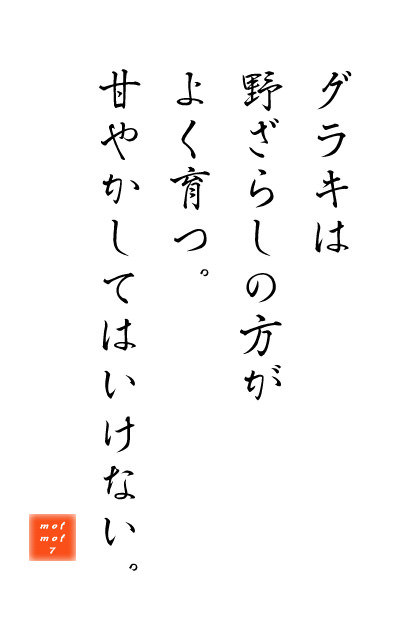 グラキは
野ざらしの方が
よく育つ。
甘やかしてはいけない。
mot
mot
7